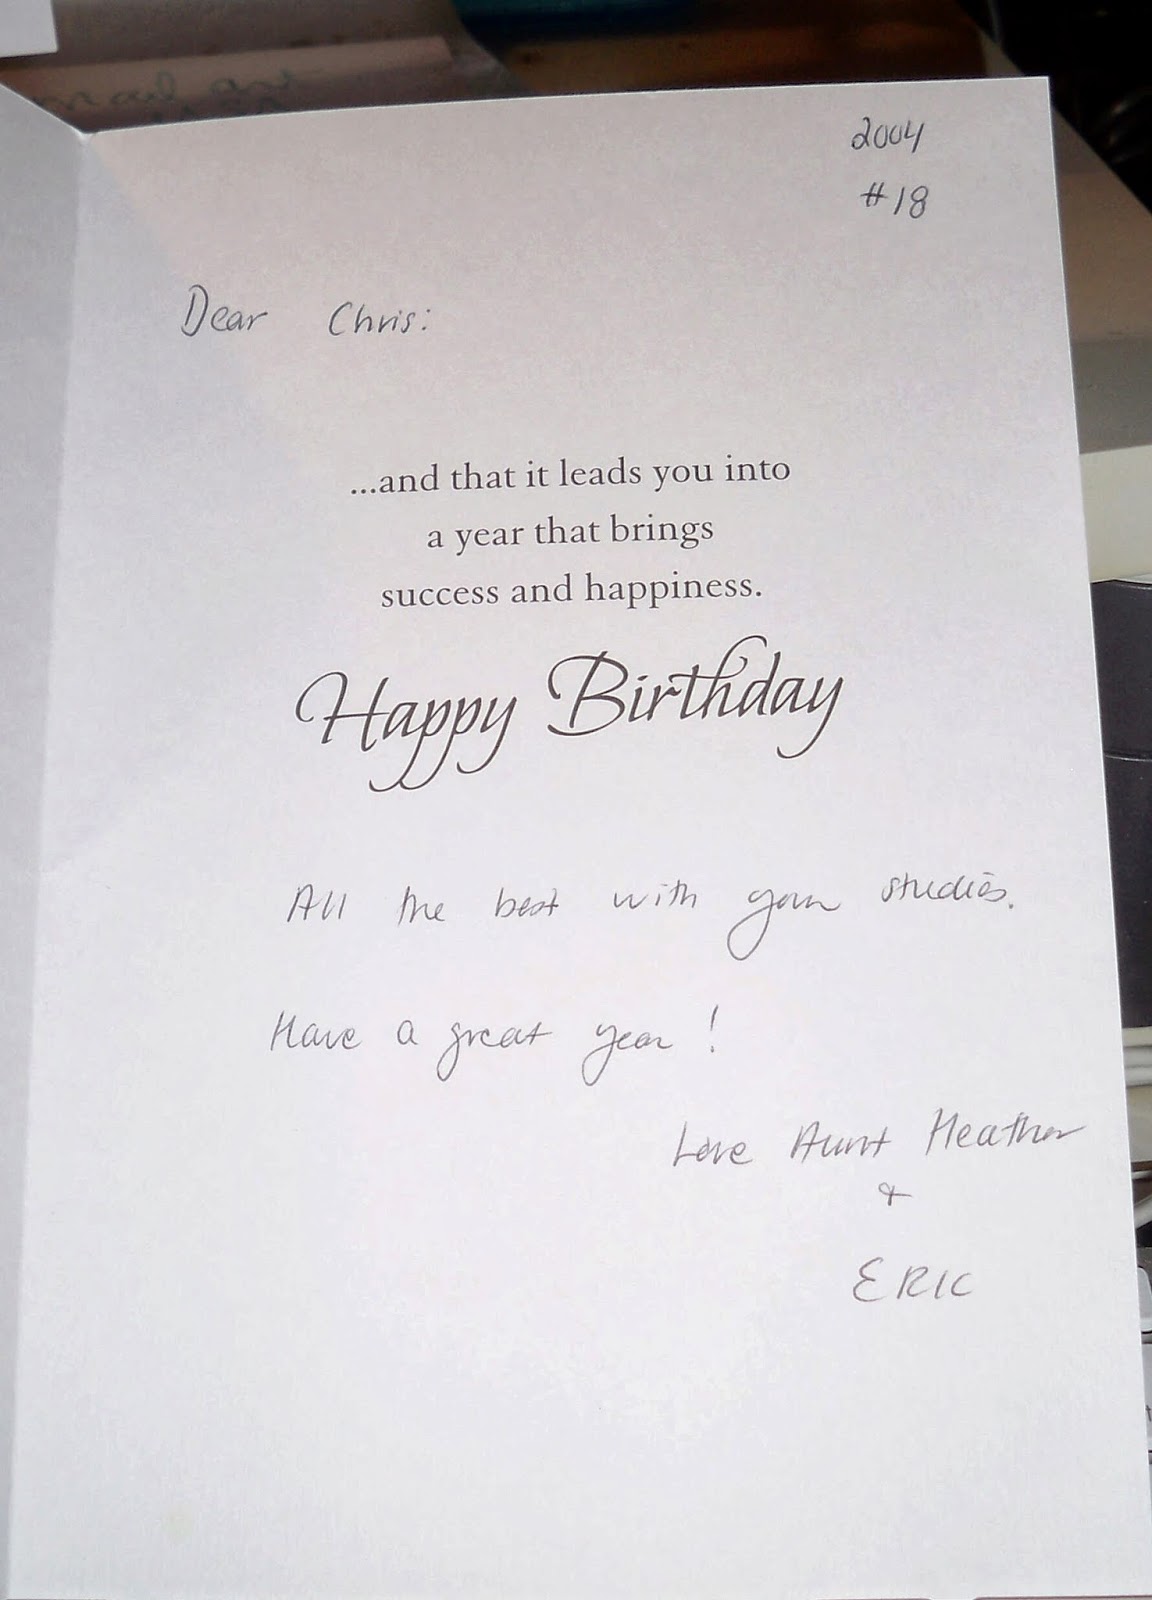 2004
#18
Dear Chris:
...and that it leads you into
a year that brings
success and happiness.
Happy Birthday
All the best with your studies.
Have a great year!
Love Aunt Heather
&
ERIC